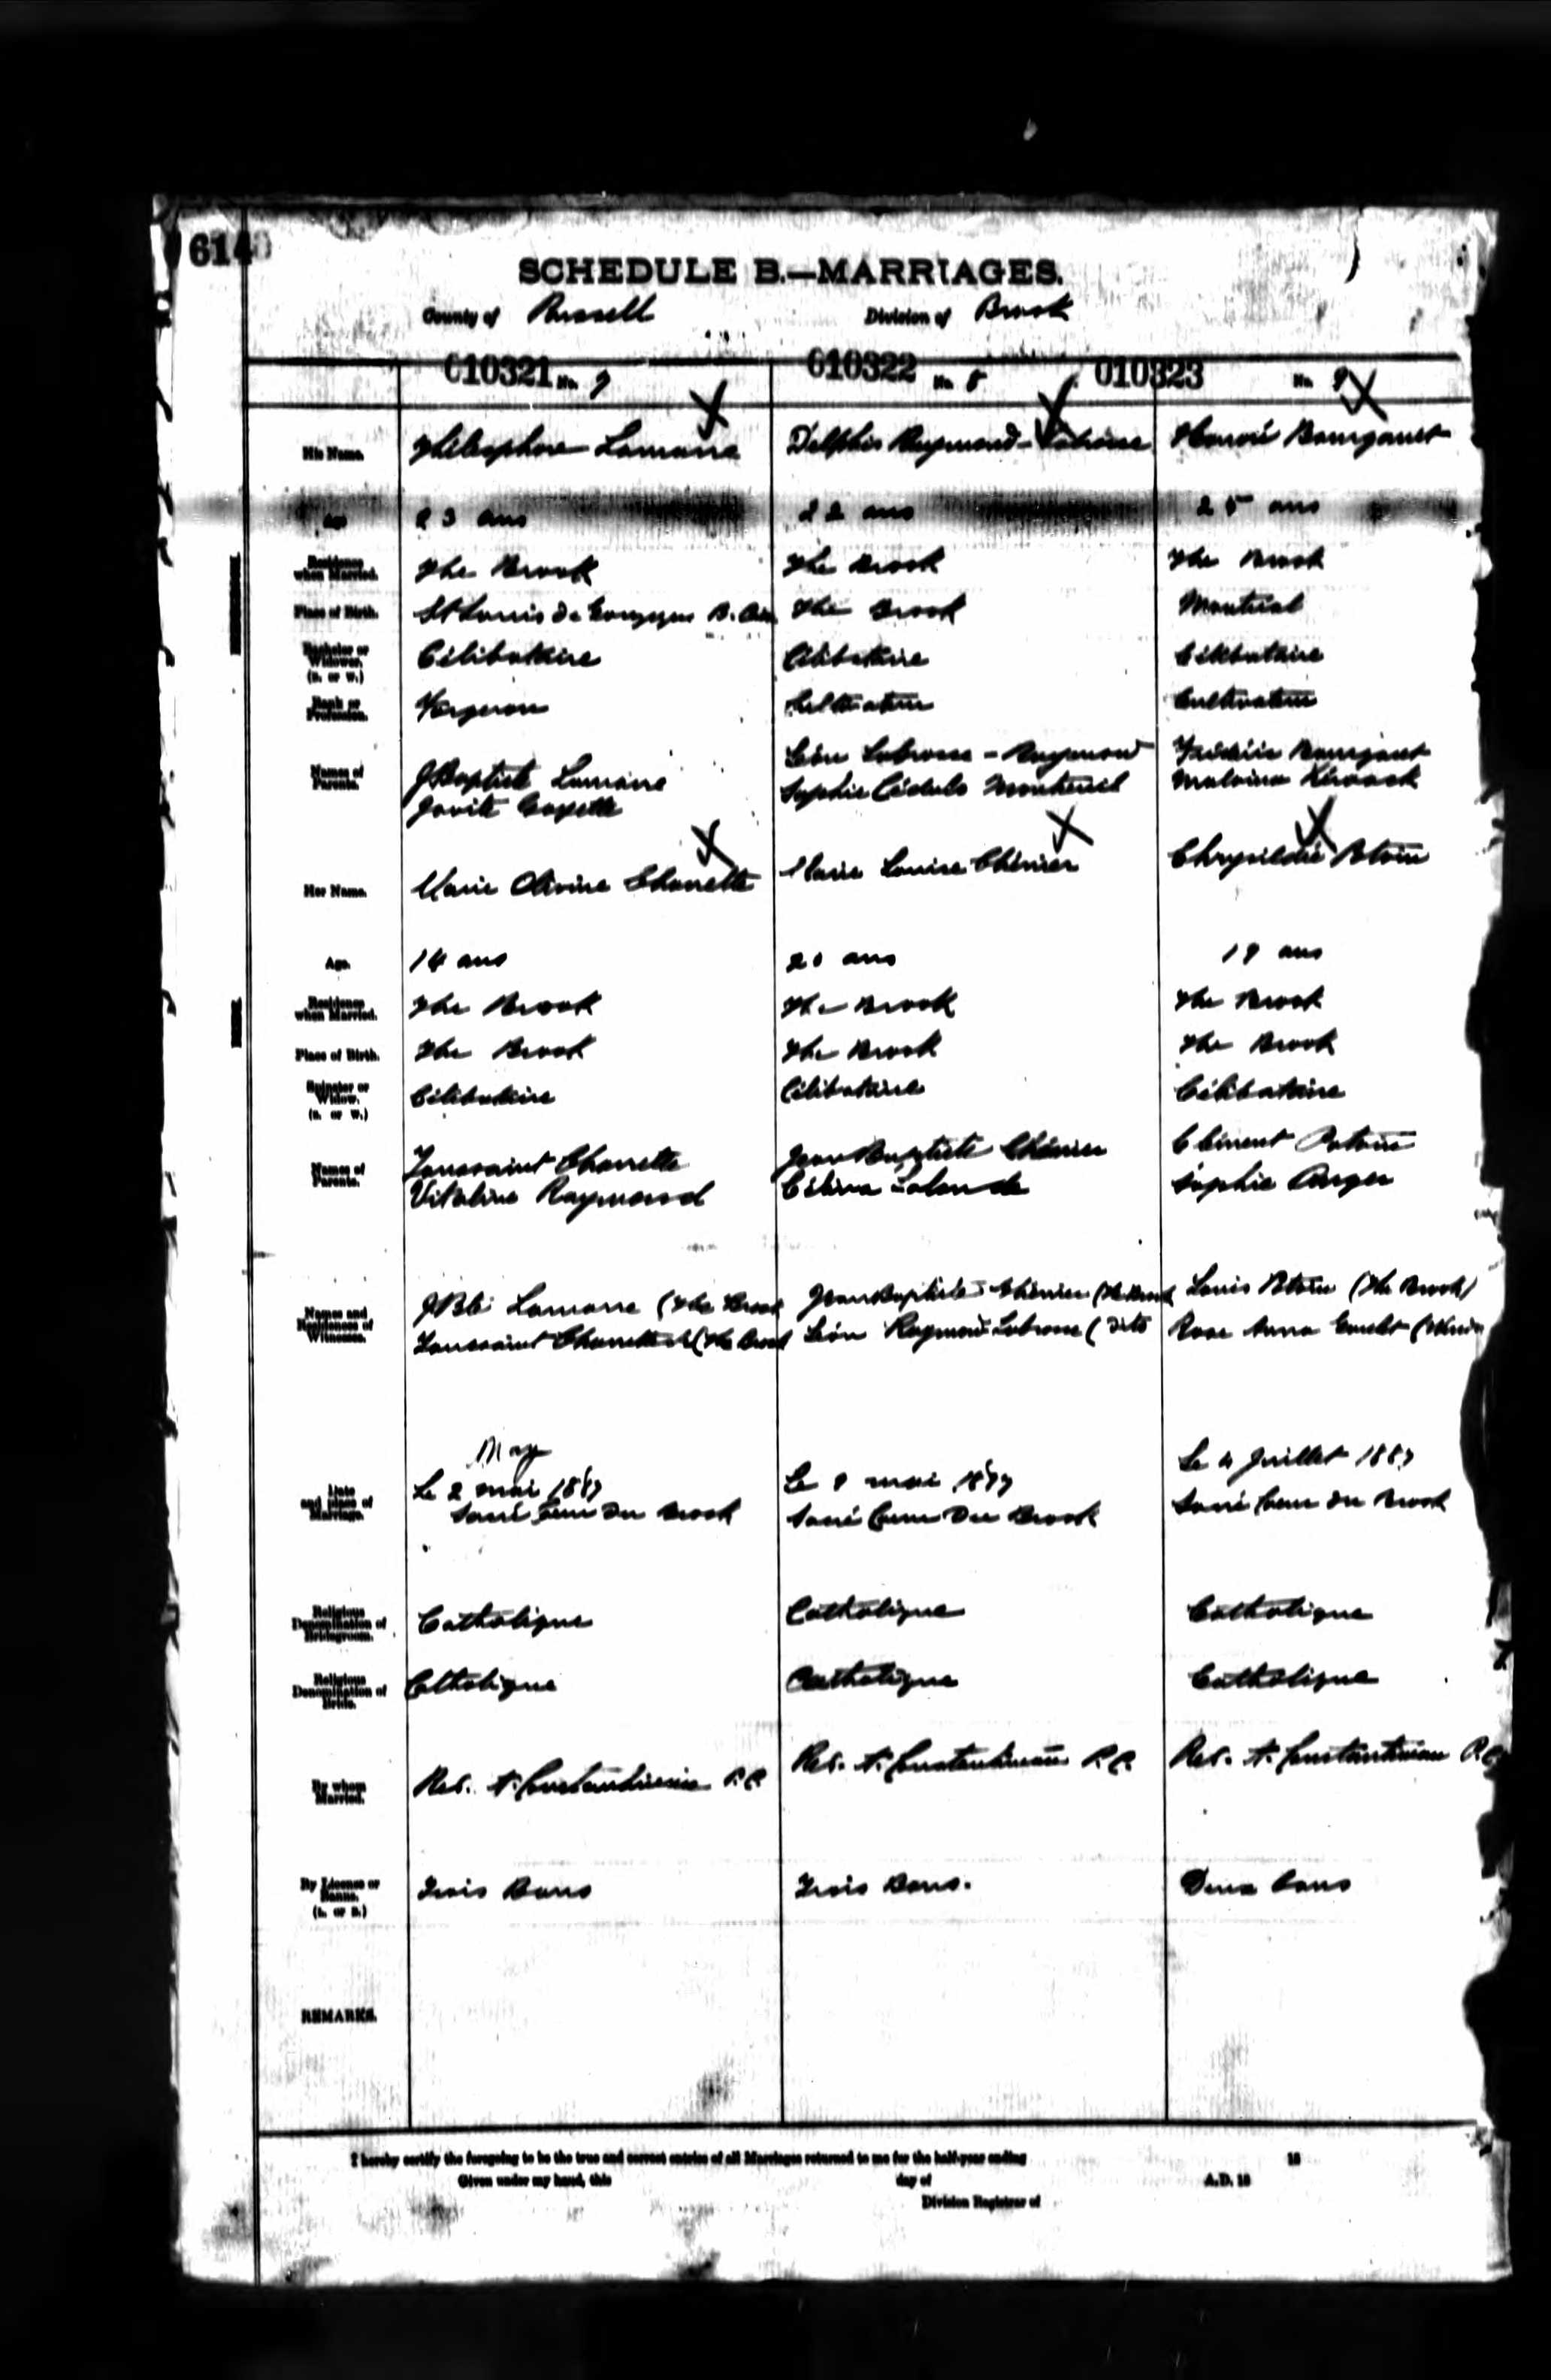 614
SCHEDULE B.—MARRIAGES.
County of Russell Division of Brook
010321 No. 7 010322 No. 8 010323 No. 9
His Name. Thélesphore Lamarre Delphis Raymond-Labrosse Honoré Bourgault
Age 23 ans 22 ans 25 ans
Residence when Married. The Brook The Brook The Brook
Place of Birth. St Louis de Gonzague The Brook Montréal
Bachelor or Widower. (B. or W.) Célibataire Célibataire Célibataire
Rank or Profession. Forgeron Cultivateur Cultivateur
Names of Parents. J Baptiste Lamarre Léon Labrosse - Raymond Frédéric Bourgault
Sophie Montreuil Malvina
Her Name. Marie Olivine Charrette Marie Louise Chénier Potvin
Age. 14 ans 20 ans 19 ans
Residence when Married. The Brook The Brook The Brook
Place of Birth. The Brook The Brook The Brook
Spinster or Widow. (S. or W.) Célibataire Célibataire Célibataire
Names of Parents. Toussaint Charrette Jean Baptiste Chénier Clément Potvin
Vitaline Raymond Célina Lalonde Sophie Auger
Names and Residences of Witnesses. J Bte Lamarre (The Brook Jean Baptiste Chénier (The Brook Louis Potvin (The Brook)
Toussaint Charrette (The Brook Léon Raymond Labrosse (dito Rose Anna
May
Date and Place of Marriage. Le 2 mai 1887 Le 9 mai 1887 Le 4 Juillet 1887
Sacré Coeur Du Brook Sacré Coeur Du Brook Sacré Coeur du Brook
Religious Denomination of Bridegroom. Catholique Catholique Catholique
Religious Denomination of Bride. Catholique Catholique Catholique
By whom Married. Rev. A. Constantineau P.P. Rev. A. Constantineau P.P. Rev. A. Constantineau P.P.
By License or Banns. (L. or B.) Trois Bans Trois Bans. Deux bans
REMARKS.
I hereby certify the foregoing to be the true and correct entries of all Marriages returned to me for the half-year ending 18
Given under my hand, this day of A.D. 18
Division Registrar of